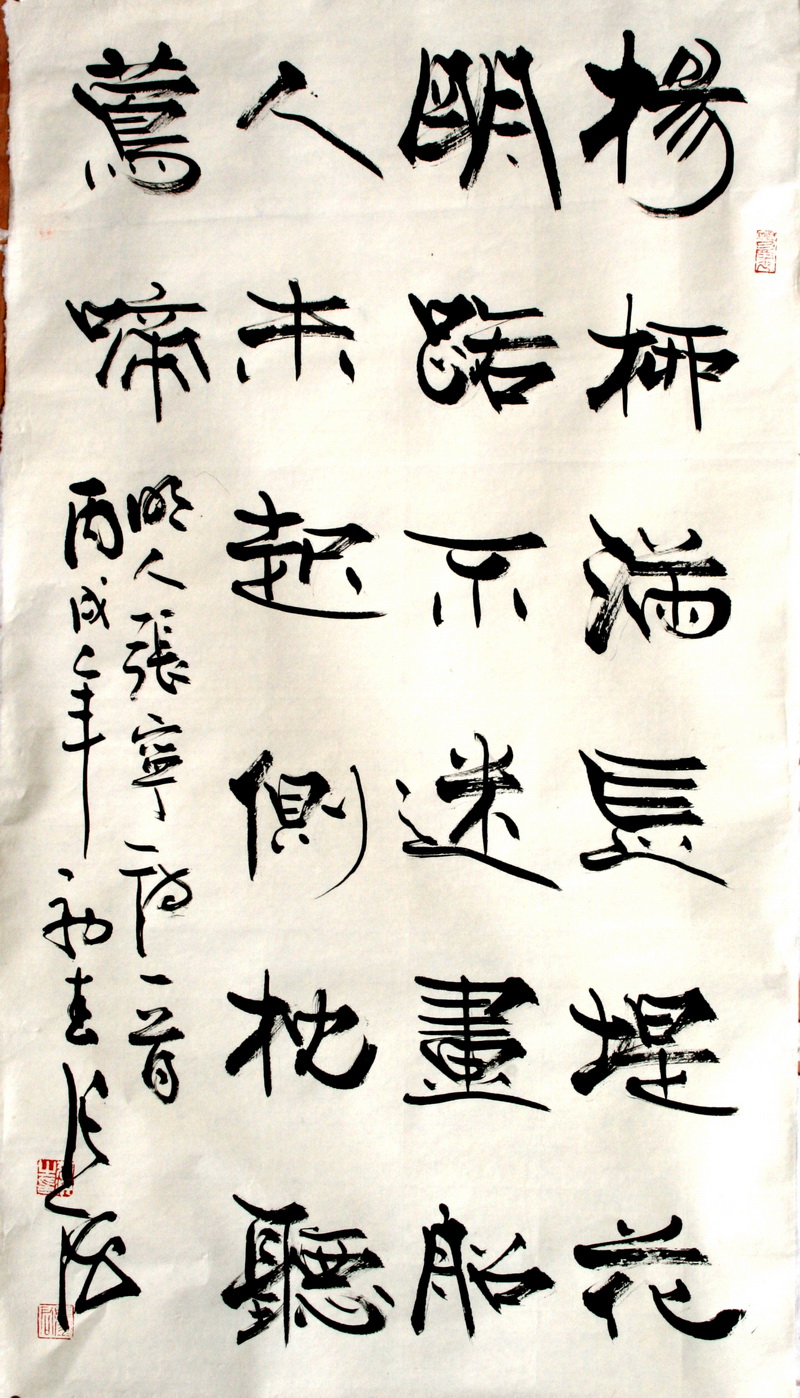 楊柳滿長堤花
明路不迷畫船
人未起側枕聽
鶯啼
明人張寧詩一首
丙戌之年初春